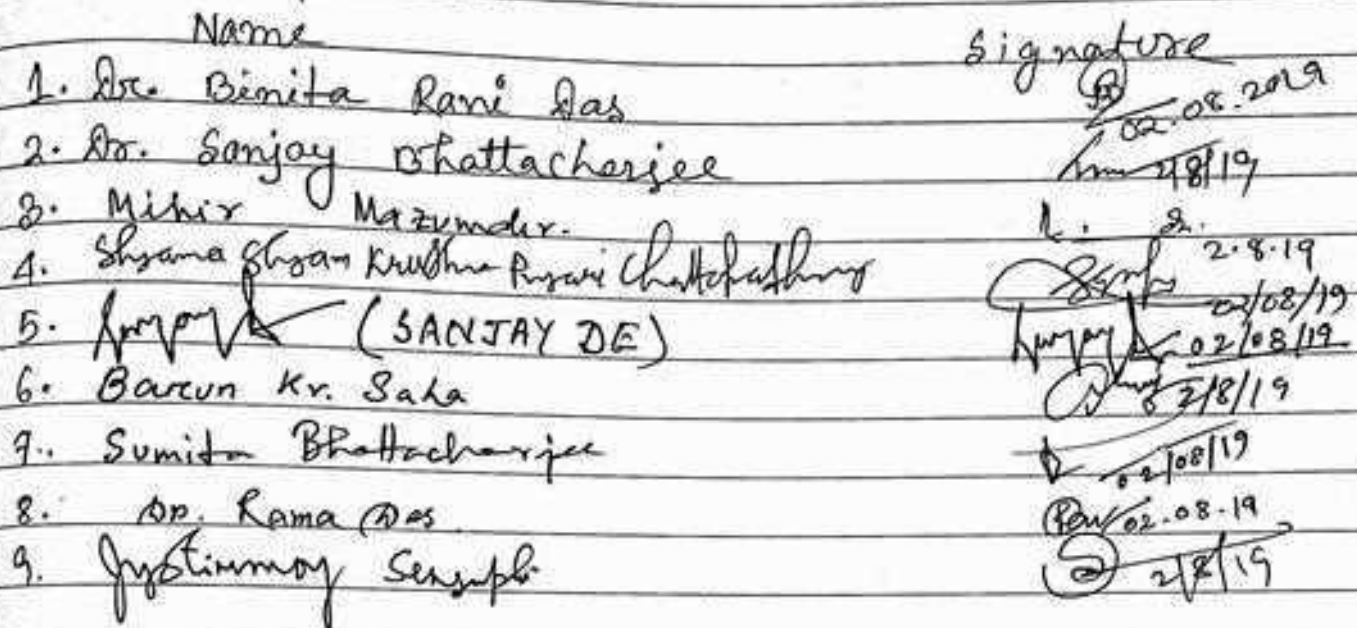 Name Signature
1. Dr. Binita Rani Das 02.08.2019
2. Dr. Sanjay Bhattacharjee 2/8/19
3. Mihir Mazumder.
4. Shyama Ghyan Krushna 2.8.19
02/08/19
5. (SANJAY DE) 02/08/19
6. Barun Kr. Saha 2/8/19
7. Sumita Bhattacharjee 02/08/19
8. Dr. Rama Das 02.08.19
9. Jyotirmoy Sengupta 2/8/19